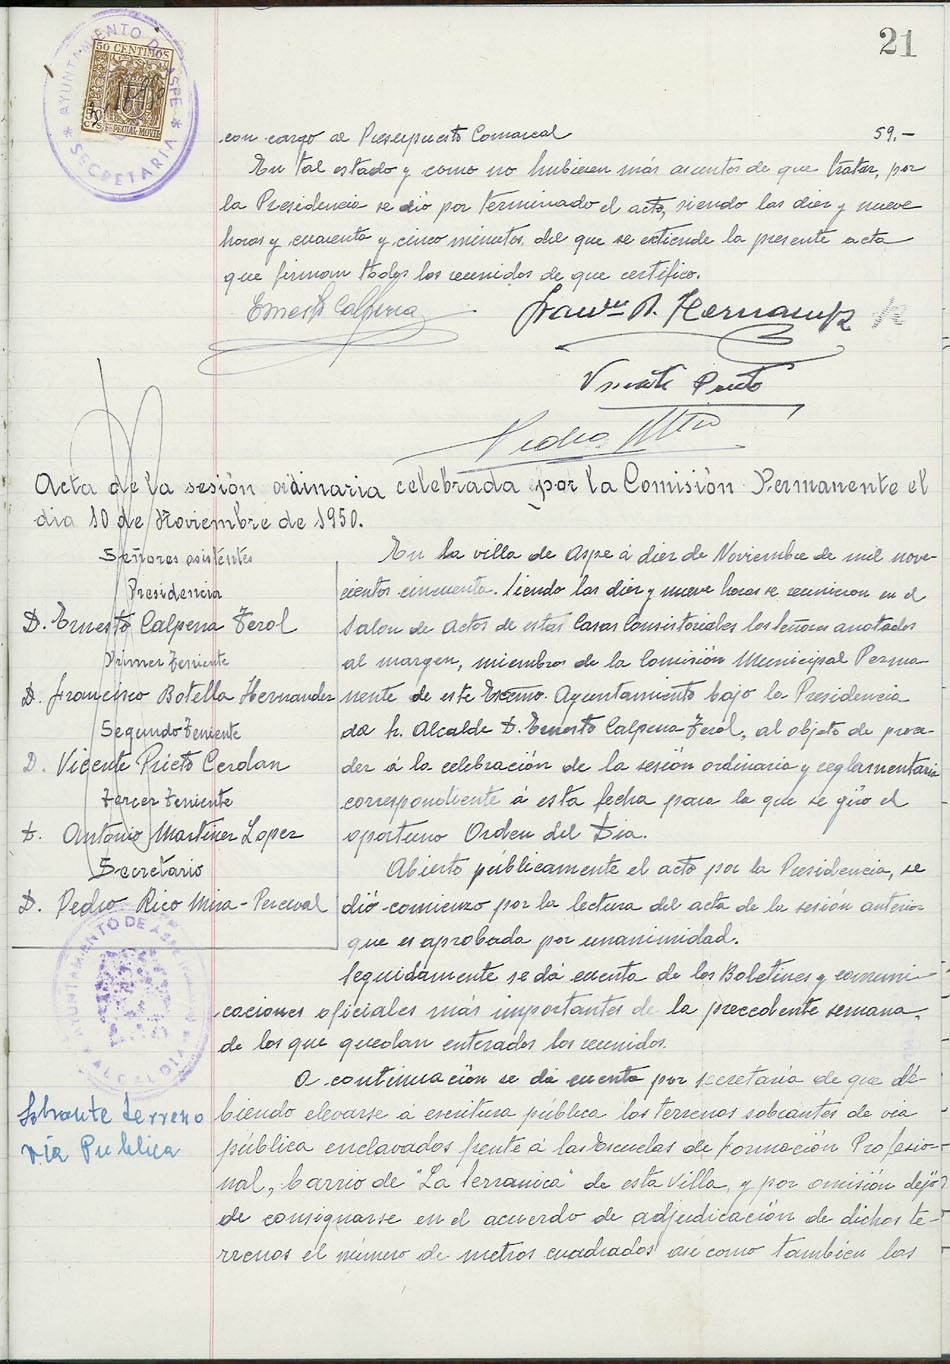 21
AYUNTAMIENTO DE ASPE
* SECRETARIA *
50 CENTIMOS
ESPECIAL MOVIL
con cargo al Presupuesto Comarcal 59.-
En tal estado y como no hubieren más asuntos de que tratar, por
la Presidencia se dió por terminado el acto, siendo las diez y nueve
horas y cuarenta y cinco minutos, del que se extiende la presente acta
que firman todos los reunidos de que certifico.
Ernesto Calpena
Francco B. Hernandez
Vicente Prieto
Pedro
Acta de la sesión ordinaria celebrada por la Comisión Permanente el
dia 10 de Noviembre de 1950.
Señores asistentes
Presidencia
D. Ernesto Calpena Ferol
Primer Teniente
D. Francisco Botella Hernandez
Segundo Teniente
D. Vicente Prieto Cerdan
Tercer Teniente
D. Antonio Martinez Lopez
Secretario
D. Pedro Rico Mira-Perceval
En la villa de Aspe á diez de Noviembre de mil nove-
cientos cincuenta. Siendo las diez y nueve horas se reunieron en el
Salon de Actos de estas Casas Consistoriales los señores anotados
al margen, miembros de la Comisión Municipal Perma
nente de este Excmo. Ayuntamiento bajo la Presidencia
del Sr. Alcalde D. Ernesto Calpena Ferol, al objeto de proce-
der á la celebración de la sesión ordinaria y reglamentaria
correspondiente á esta fecha para la que se giró el
oportuno Orden del Dia.
Abierto públicamente el acto por la Presidencia, se
dió comienzo por la lectura del acta de la sesión anterior
que es aprobada por unanimidad.
Seguidamente se dá cuenta de los Boletines y comuni-
caciones oficiales más importantes de la precedente semana,
de los que quedan enterados los reunidos.
AYUNTAMIENTO DE ASPE
ALCALDIA
Sobrante terreno
vía Publica
A continuación se dá cuenta por secretaría de que de-
biendo elevarse á escritura pública los terrenos sobrantes de via
pública enclavados frente á las Escuelas de Formación Profesio-
nal, barrio de "La Serranica" de esta Villa, y por omisión dejó
de consignarse en el acuerdo de adjudicación de dichos te-
rrenos el número de metros cuadrados así como tambien los